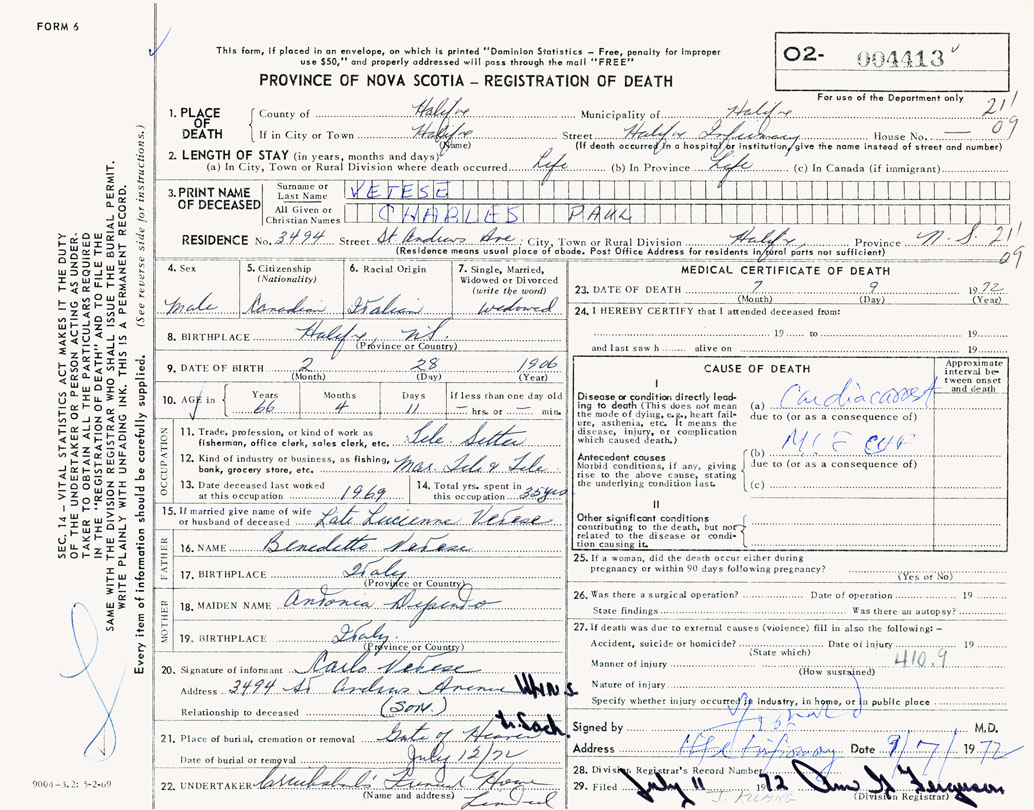 FORM 6
This form, if placed in an envelope, on which is printed "Dominion Statistics – Free, penalty for improper
use $50," and properly addressed will pass through the mail "FREE"
PROVINCE OF NOVA SCOTIA – REGISTRATION OF DEATH
02- 004413
For use of the Department only
21'
09
SEC. 14 – VITAL STATISTICS ACT MAKES IT THE DUTY
OF THE UNDERTAKER OR PERSON ACTING AS UNDER-
TAKER TO OBTAIN ALL THE PARTICULARS REQUIRED
IN THE "REGISTRATION OF DEATH" AND TO FILE THE
SAME WITH THE DIVISION REGISTRAR WHO SHALL ISSUE THE BURIAL PERMIT.
WRITE PLAINLY WITH UNFADING INK. THIS IS A PERMANENT RECORD.
Every item of information should be carefully supplied. (See reverse side for instructions.)
1. PLACE OF DEATH
County of Halifx Municipality of Halifx
If in City or Town Halifx Street Halifx Infirmary House No. —
(Name) (If death occurred in a hospital or institution, give the name instead of street and number)
2. LENGTH OF STAY (in years, months and days)
(a) In City, Town or Rural Division where death occurred Life (b) In Province Life (c) In Canada (if immigrant)
3. PRINT NAME OF DECEASED
Surname or Last Name VETESE
All Given or Christian Names CHARLES PAUL
RESIDENCE No. 3494 Street St Andrews Ave. City, Town or Rural Division Halifx, Province N.S. 21'
(Residence means usual place of abode. Post Office Address for residents in rural parts not sufficient)
09
4. Sex Male
5. Citizenship (Nationality) Canadian
6. Racial Origin Italian
7. Single, Married, Widowed or Divorced (write the word) widowed
8. BIRTHPLACE Halifx, N.S.
(Province or Country)
9. DATE OF BIRTH 2 28 1906
(Month) (Day) (Year)
10. AGE in Years Months Days If less than one day old
66 4 11 — hrs. or — min.
OCCUPATION
11. Trade, profession, or kind of work as fisherman, office clerk, sales clerk, etc. Tile Setter
12. Kind of industry or business, as fishing, bank, grocery store, etc. Mar. Tile & Tile
13. Date deceased last worked at this occupation 1969
14. Total yrs. spent in this occupation 35 yrs
15. If married give name of wife or husband of deceased Late Lucienne Vetese
FATHER
16. NAME Benedetto Vetese
17. BIRTHPLACE Italy
(Province or Country)
MOTHER
18. MAIDEN NAME Antonia
19. BIRTHPLACE Italy.
(Province or Country)
20. Signature of informant Carlo Vetese
Address 3494 St. Andrews Avenue
Relationship to deceased (Son.)
21. Place of burial, cremation or removal Gate of Heaven
Lr. Sack.
Date of burial or removal July 12/72
22. UNDERTAKER Cruikshank's Funeral Home
(Name and address) Limited
9004-3.2: 5-2-69
MEDICAL CERTIFICATE OF DEATH
23. DATE OF DEATH 7 9 1972
(Month) (Day) (Year)
24. I HEREBY CERTIFY that I attended deceased from:
19 to 19
and last saw h alive on 19
CAUSE OF DEATH
Approximate interval between onset and death
I
Disease or condition directly leading to death (This does not mean the mode of dying, e.g., heart failure, asthenia, etc. It means the disease, injury, or complication which caused death.)
(a) Cardiac arrest
due to (or as a consequence of)
Antecedent causes
Morbid conditions, if any, giving rise to the above cause, stating the underlying condition last.
(b) M.I. & CHF
due to (or as a consequence of)
(c)
II
Other significant conditions
contributing to the death, but not related to the disease or condition causing it.
25. If a woman, did the death occur either during
pregnancy or within 90 days following pregnancy?
(Yes or No)
26. Was there a surgical operation? Date of operation 19
State findings Was there an autopsy?
27. If death was due to external causes (violence) fill in also the following: –
Accident, suicide or homicide? Date of injury 19
(State which) 410.9
Manner of injury
(How sustained)
Nature of injury
Specify whether injury occurred in industry, in home, or in public place
Signed by M.D.
Address Hfx Infirmary Date 9/7/ 1972
28. Division Registrar's Record Number
29. Filed July 11 1972 Ferguson
(Division Registrar)